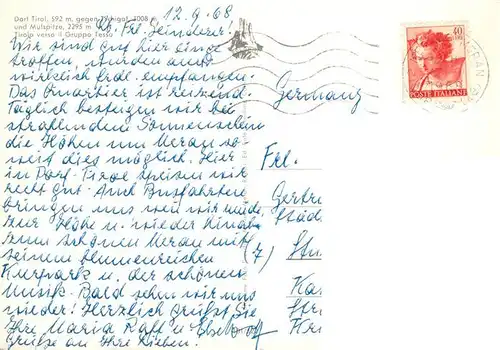 Dorf Tirol, 592 m, gegen Tschigat, 3008 m
und Mutspitze, 2295 m
Tirolo verso il Gruppo Tessa
12.9.68
Lb. Frl.
Wir sind gut hier einge-
troffen, wurden auch
wirklich frdl. empfangen.
Das Quartier ist reizend.
Täglich besteigen wir bei
strahlendem Sonnenschein
die Höhen um Meran so-
weit dies möglich. Hier
in Dorf-Tirol speisen wir
recht gut. Auch Busfahrten
bringen uns wenn wir müde,
zur Höhe u. wieder hinab
zum schönen Meran mit
seinem blumenreichen
Kurpark u. der schönen
Musik. Bald sehn wir uns
wieder! Herzlich grüßt Sie
Ihre Maria Raff u.
Grüße an Ihre Lieben.
Germany
40
POSTE ITALIANE
MERAN
Frl.
Gertr
Städt
(7)